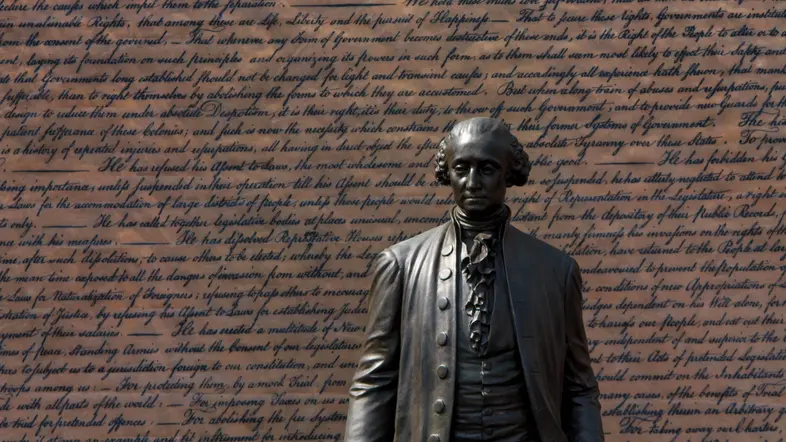 declare the causes which impel them to the separation. —— We hold these truths
certain unalienable Rights, that among these are Life, Liberty and the pursuit of Happiness — That to secure these rights, Governments are instituted
from the consent of the governed, — That whenever any Form of Government becomes destructive of these ends, it is the Right of the People to alter or to a
ent, laying its foundation on such principles and organizing its powers in such form, as to them shall seem most likely to effect their Safety and
ate that Governments long established should not be changed for light and transient causes; and accordingly all experience hath shewn, that mank
sufferable, than to right themselves by abolishing the forms to which they are accustomed. But when a long train of abuses and usurpations, pur
design to reduce them under absolute Despotism, it is their right, it is their duty, to throw off such Government, and to provide new Guards for th
patient sufferance of these Colonies; and such is now the necessity which constrains them their former Systems of Government. The his
is a history of repeated injuries and usurpations, all having in direct object the est absolute Tyranny over these States. To prove
—— He has refused his Assent to Laws, the most wholesome and public good. —— He has forbidden his G
sing importance, unless suspended in their operation till his Assent should be o so suspended, he has utterly neglected to attend to
r Laws for the accommodation of large districts of people, unless those people would rel right of Representation in the Legislature, a right
nts only. —— He has called together legislative bodies at places unusual, uncomfo distant from the depository of their public Records,
nce with his measures —— He has dissolved Representative Houses re with manly firmness his invasions on the rights of the
time, after such dissolutions, to cause others to be elected; whereby the Leg ihilation, have returned to the People at lar
the mean time exposed to all the dangers of invasion from without, and endeavoured to prevent the population
e Laws for Naturalization of Foreigners; refusing to pass others to encourag the conditions of new Appropriations of
istration of Justice, by refusing his Assent to Laws for establishing Judici udges dependent on his Will alone, for
yment of their salaries. —— He has erected a multitude of New to harass our people, and eat out their
mes of peace, Standing Armies without the Consent of our legislatures independent of and superior to the
thers to subject us to a jurisdiction foreign to our constitution, and un to their Acts of pretended Legislation
troops among us: — For protecting them, by a mock Trial, from should commit on the Inhabitants
de with all parts of the world: — For imposing Taxes on us w many cases, of the benefits of Trial
be tried for pretended offences. — For abolishing the free System establishing therein an Arbitrary g
example and fit instrument for introducing For taking away our Charters,